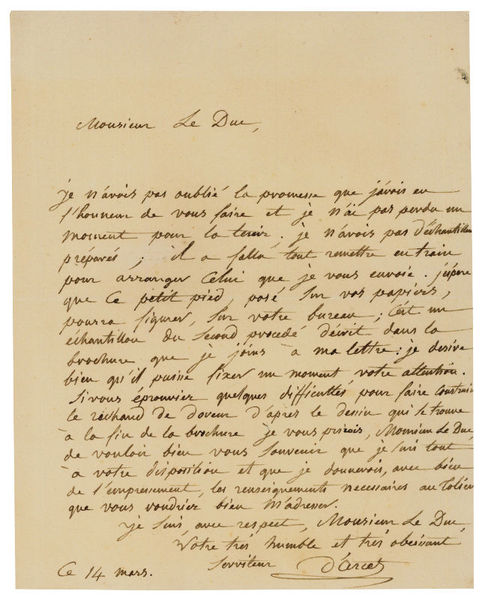 Monsieur Le Duc,
je n'avois pas oublié la promesse que j'avois eu
l'honneur de vous faire et je n'ai pas perdu un
moment pour la tenir. je n'avois pas d'échantillon
préparés ; il a fallu tout remettre en train
pour arranger Celui que je vous envoie. j'espère
que Ce petit pied, posé sur vos papiers,
pourra figurer, sur votre bureau ; C'est un
échantillon du Second procédé décrit dans la
brochure que je joins à ma lettre : je desire
bien qu'il puisse fixer un moment votre attention.
Si vous éprouviez quelques difficultés pour faire Construire
le réchaud de doreur d'après le dessin qui se trouve
à la fin de la brochure je vous prierois, Monsieur Le Duc,
de vouloir bien vous Souvenir que je suis tout
à votre disposition et que je donnerois, avec bien
de l'empressement, les renseignements necessaires au Tolier
que vous voudriez bien M'adresser.
je Suis, avec respect, Monsieur Le Duc,
Votre très humble et très obéissant
Serviteur d'Arcet
Ce 14 mars.